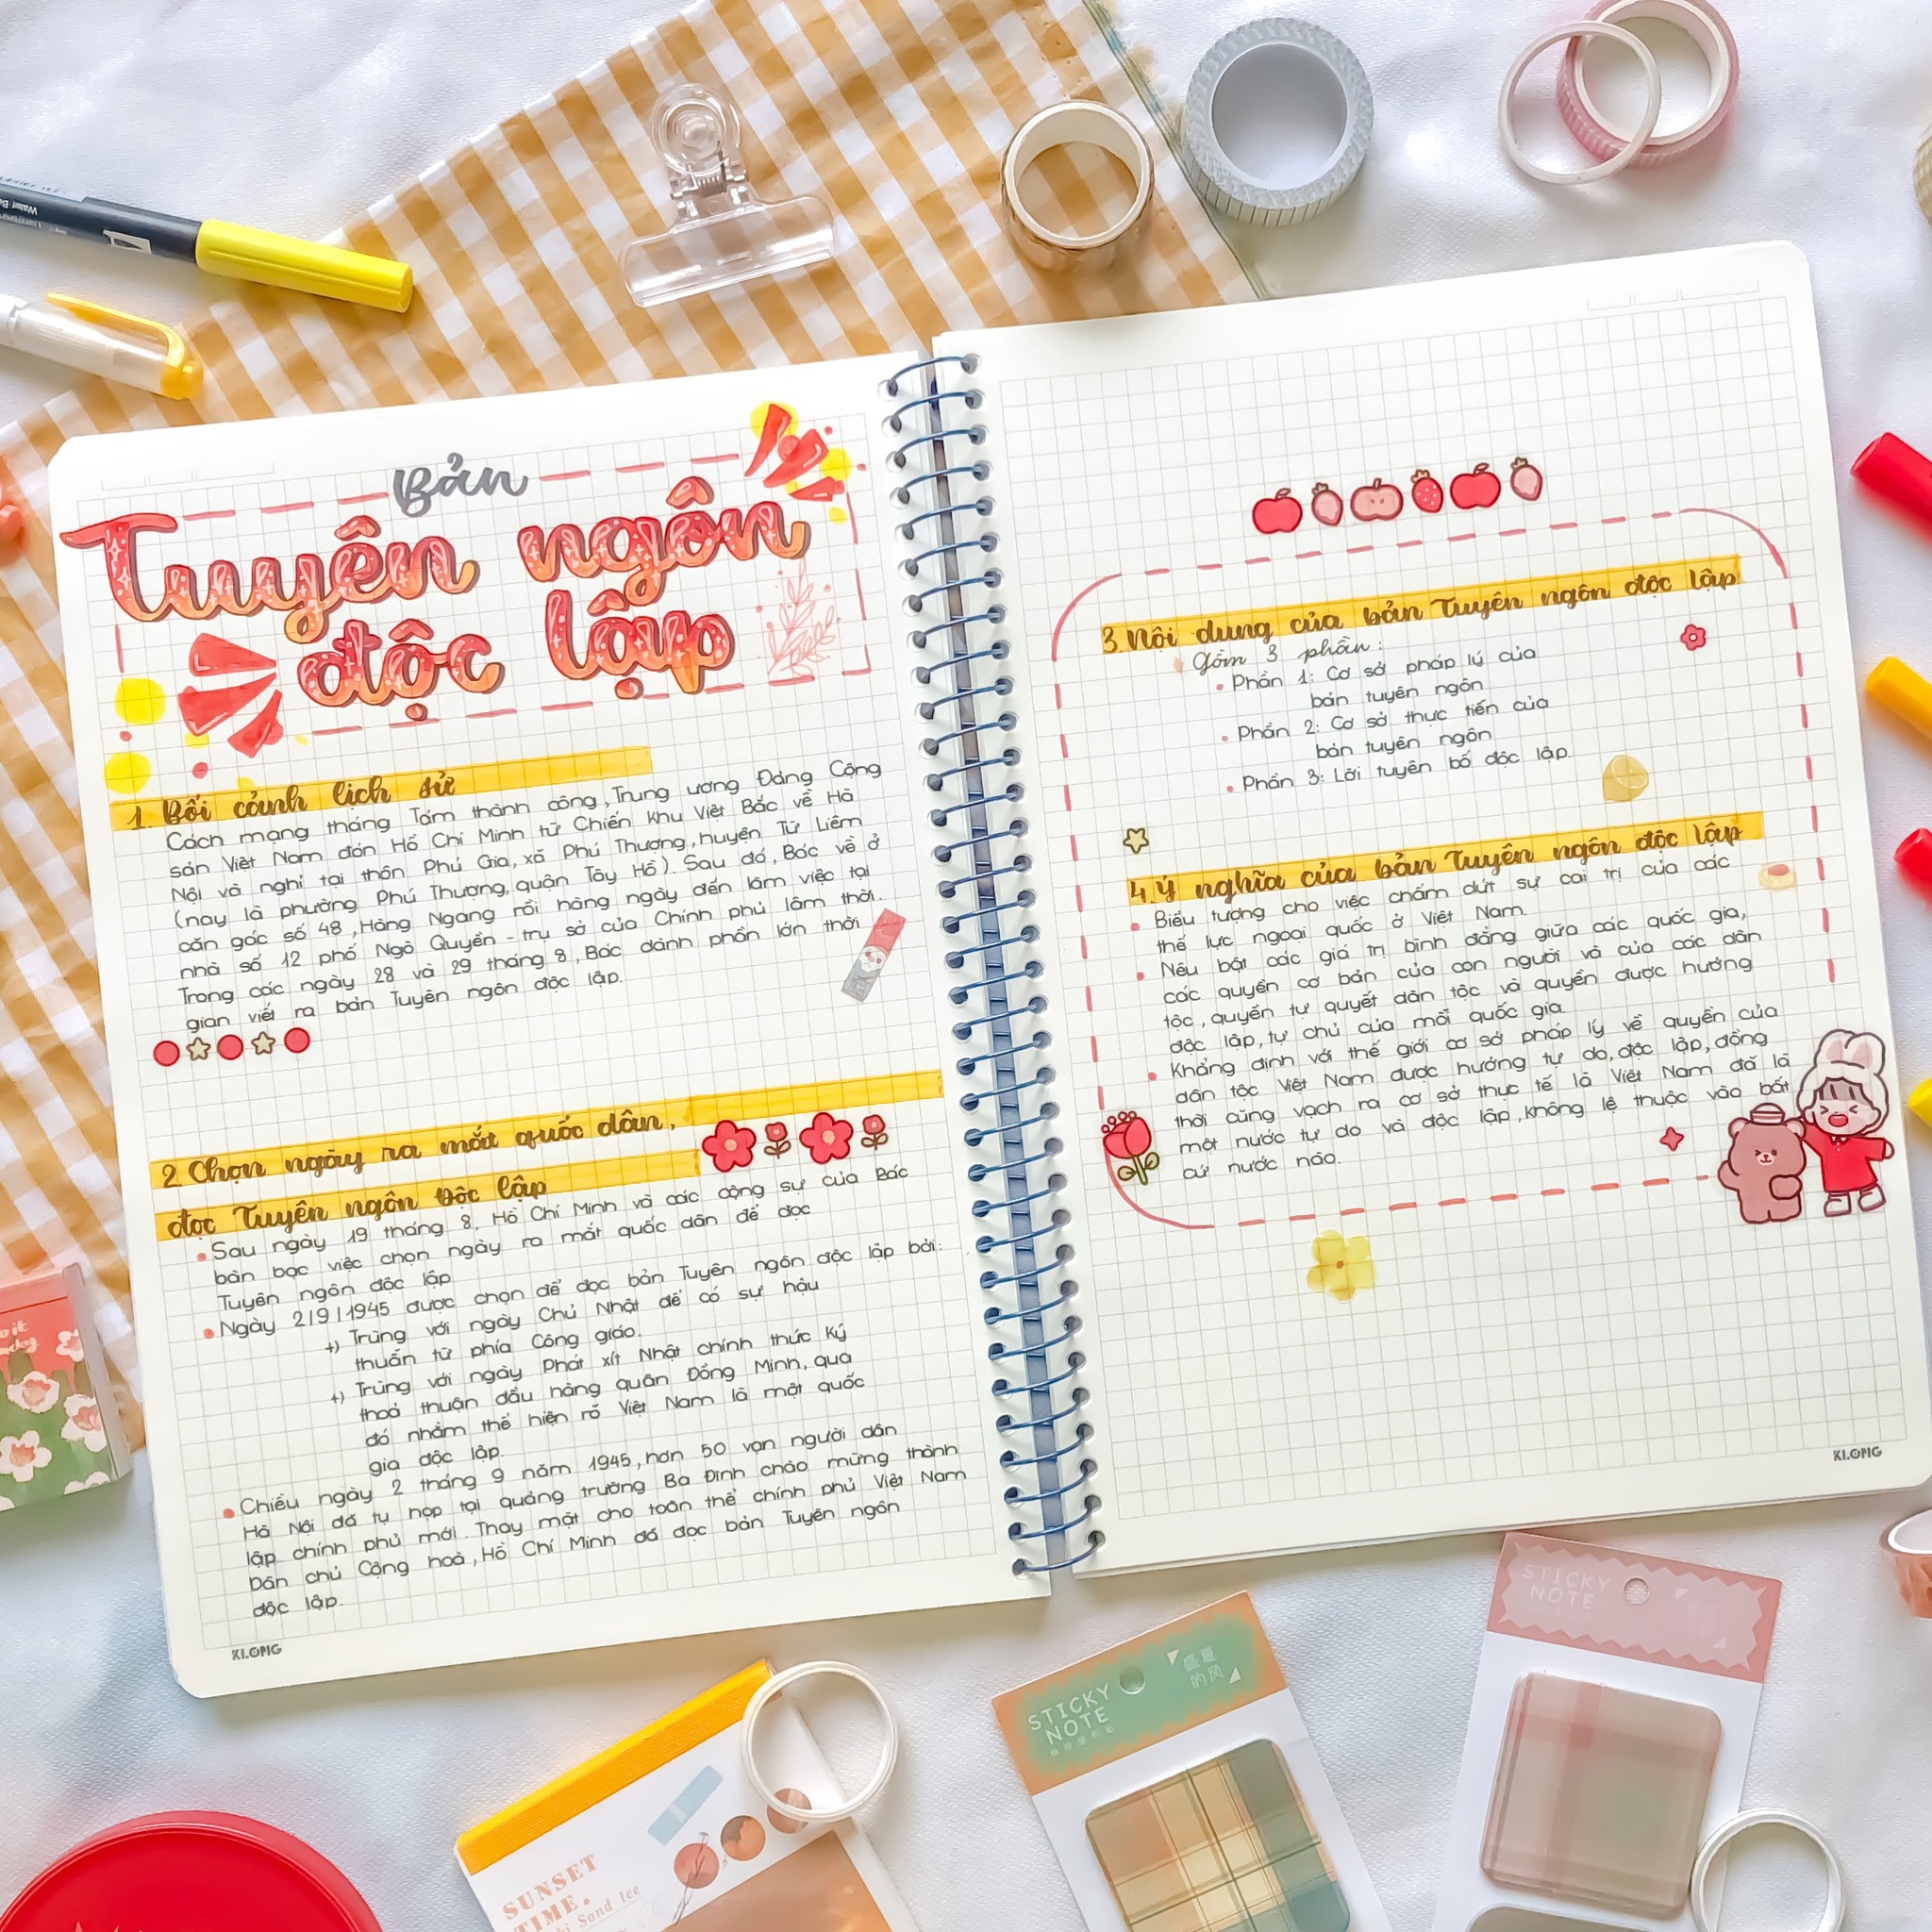 Bản
Tuyên ngôn
độc lập
1. Bối cảnh lịch sử
Cách mạng tháng Tám thành công, Trung ương Đảng Cộng
sản Việt Nam đón Hồ Chí Minh từ Chiến khu Việt Bắc về Hà
Nội và nghỉ tại thôn Phú Gia, xã Phú Thượng, huyện Từ Liêm
(nay là phường Phú Thượng, quận Tây Hồ). Sau đó, Bác về ở
căn gác số 48, Hàng Ngang rồi hàng ngày đến làm việc tại
nhà số 12 phố Ngô Quyền - trụ sở của Chính phủ lâm thời.
Trong các ngày 28 và 29 tháng 8, Bác dành phần lớn thời
gian viết ra bản Tuyên ngôn độc lập.
2. Chọn ngày ra mắt quốc dân,
đọc Tuyên ngôn Độc lập
Sau ngày 19 tháng 8, Hồ Chí Minh và các cộng sự của Bác
bàn bạc việc chọn ngày ra mắt quốc dân để đọc
Tuyên ngôn độc lập
Ngày 2/9/1945 được chọn để đọc bản Tuyên ngôn độc lập bởi:
+) Trùng với ngày Chủ Nhật để có sự hậu
thuẫn từ phía Công giáo.
+) Trùng với ngày Phát xít Nhật chính thức ký
thoả thuận đầu hàng quân Đồng Minh, qua
đó nhằm thể hiện rõ Việt Nam là một quốc
gia độc lập.
Chiều ngày 2 tháng 9 năm 1945, hơn 50 vạn người dân
Hà Nội đã tụ họp tại quảng trường Ba Đình chào mừng thành
lập chính phủ mới. Thay mặt cho toàn thể chính phủ Việt Nam
Dân chủ Cộng hoà, Hồ Chí Minh đã đọc bản Tuyên ngôn
độc lập.
KLONG
3. Nội dung của bản Tuyên ngôn độc lập
Gồm 3 phần:
Phần 1: Cơ sở pháp lý của
bản tuyên ngôn
Phần 2: Cơ sở thực tiến của
bản tuyên ngôn
Phần 3: Lời tuyên bố độc lập.
4. Ý nghĩa của bản Tuyên ngôn độc lập
Biểu tượng cho việc chấm dứt sự cai trị của các
thế lực ngoại quốc ở Việt Nam.
Nêu bật các giá trị bình đẳng giữa các quốc gia,
các quyền cơ bản của con người và của các dân
tộc, quyền tự quyết dân tộc và quyền được hưởng
độc lập, tự chủ của mỗi quốc gia.
Khẳng định với thế giới cơ sở pháp lý về quyền của
dân tộc Việt Nam được hưởng tự do, độc lập, đồng
thời cũng vạch ra cơ sở thực tế là Việt Nam đã là
một nước tự do và độc lập, không lệ thuộc vào bất
cứ nước nào.
KLONG
STICKY
NOTE
盛夏
的风
STICKY
NOTE
SUNSET
TIME.
Sand Ice